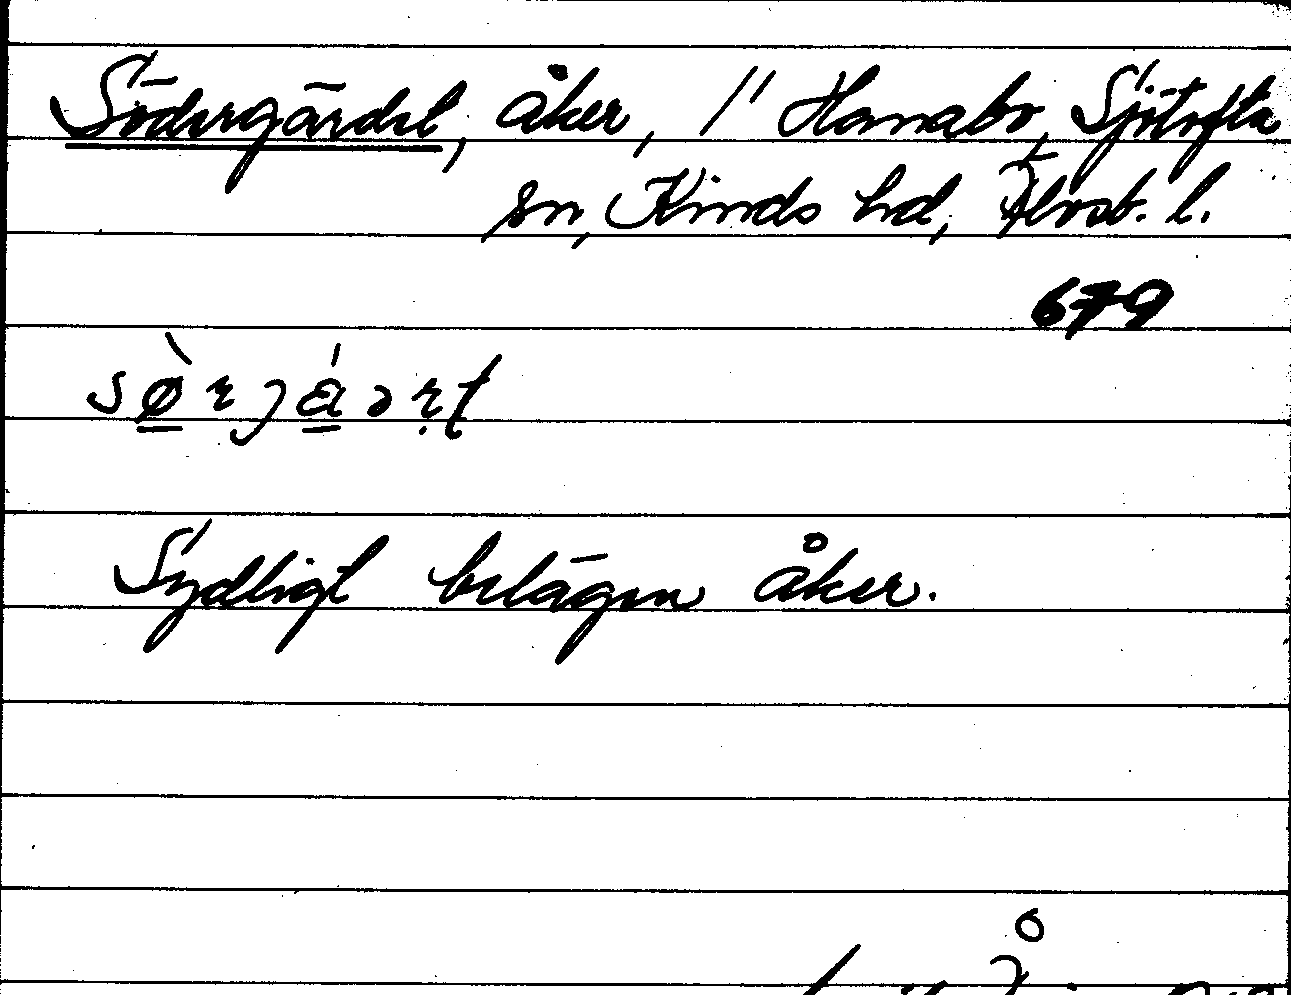 Södergärdet, åker, 1" Hanabo, Sjötofta
sn, Kinds hd, Älvsb. l.
679
Sydligt belägen åker.